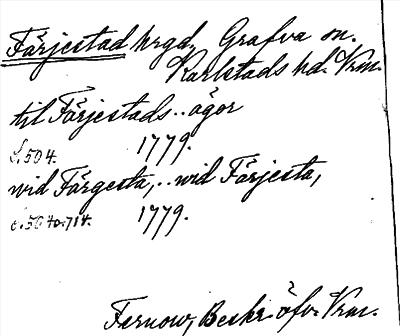 Färjestad hrgd, Grafva sn.
Karlstads hd. Vrm.
til Färjestads .. ägor
s. 504. 1779.
wid Färgesta, .. wid Färjesta,
s. 504 o. 714. 1779.
Fernow, Beskr. öfv. Vrm.